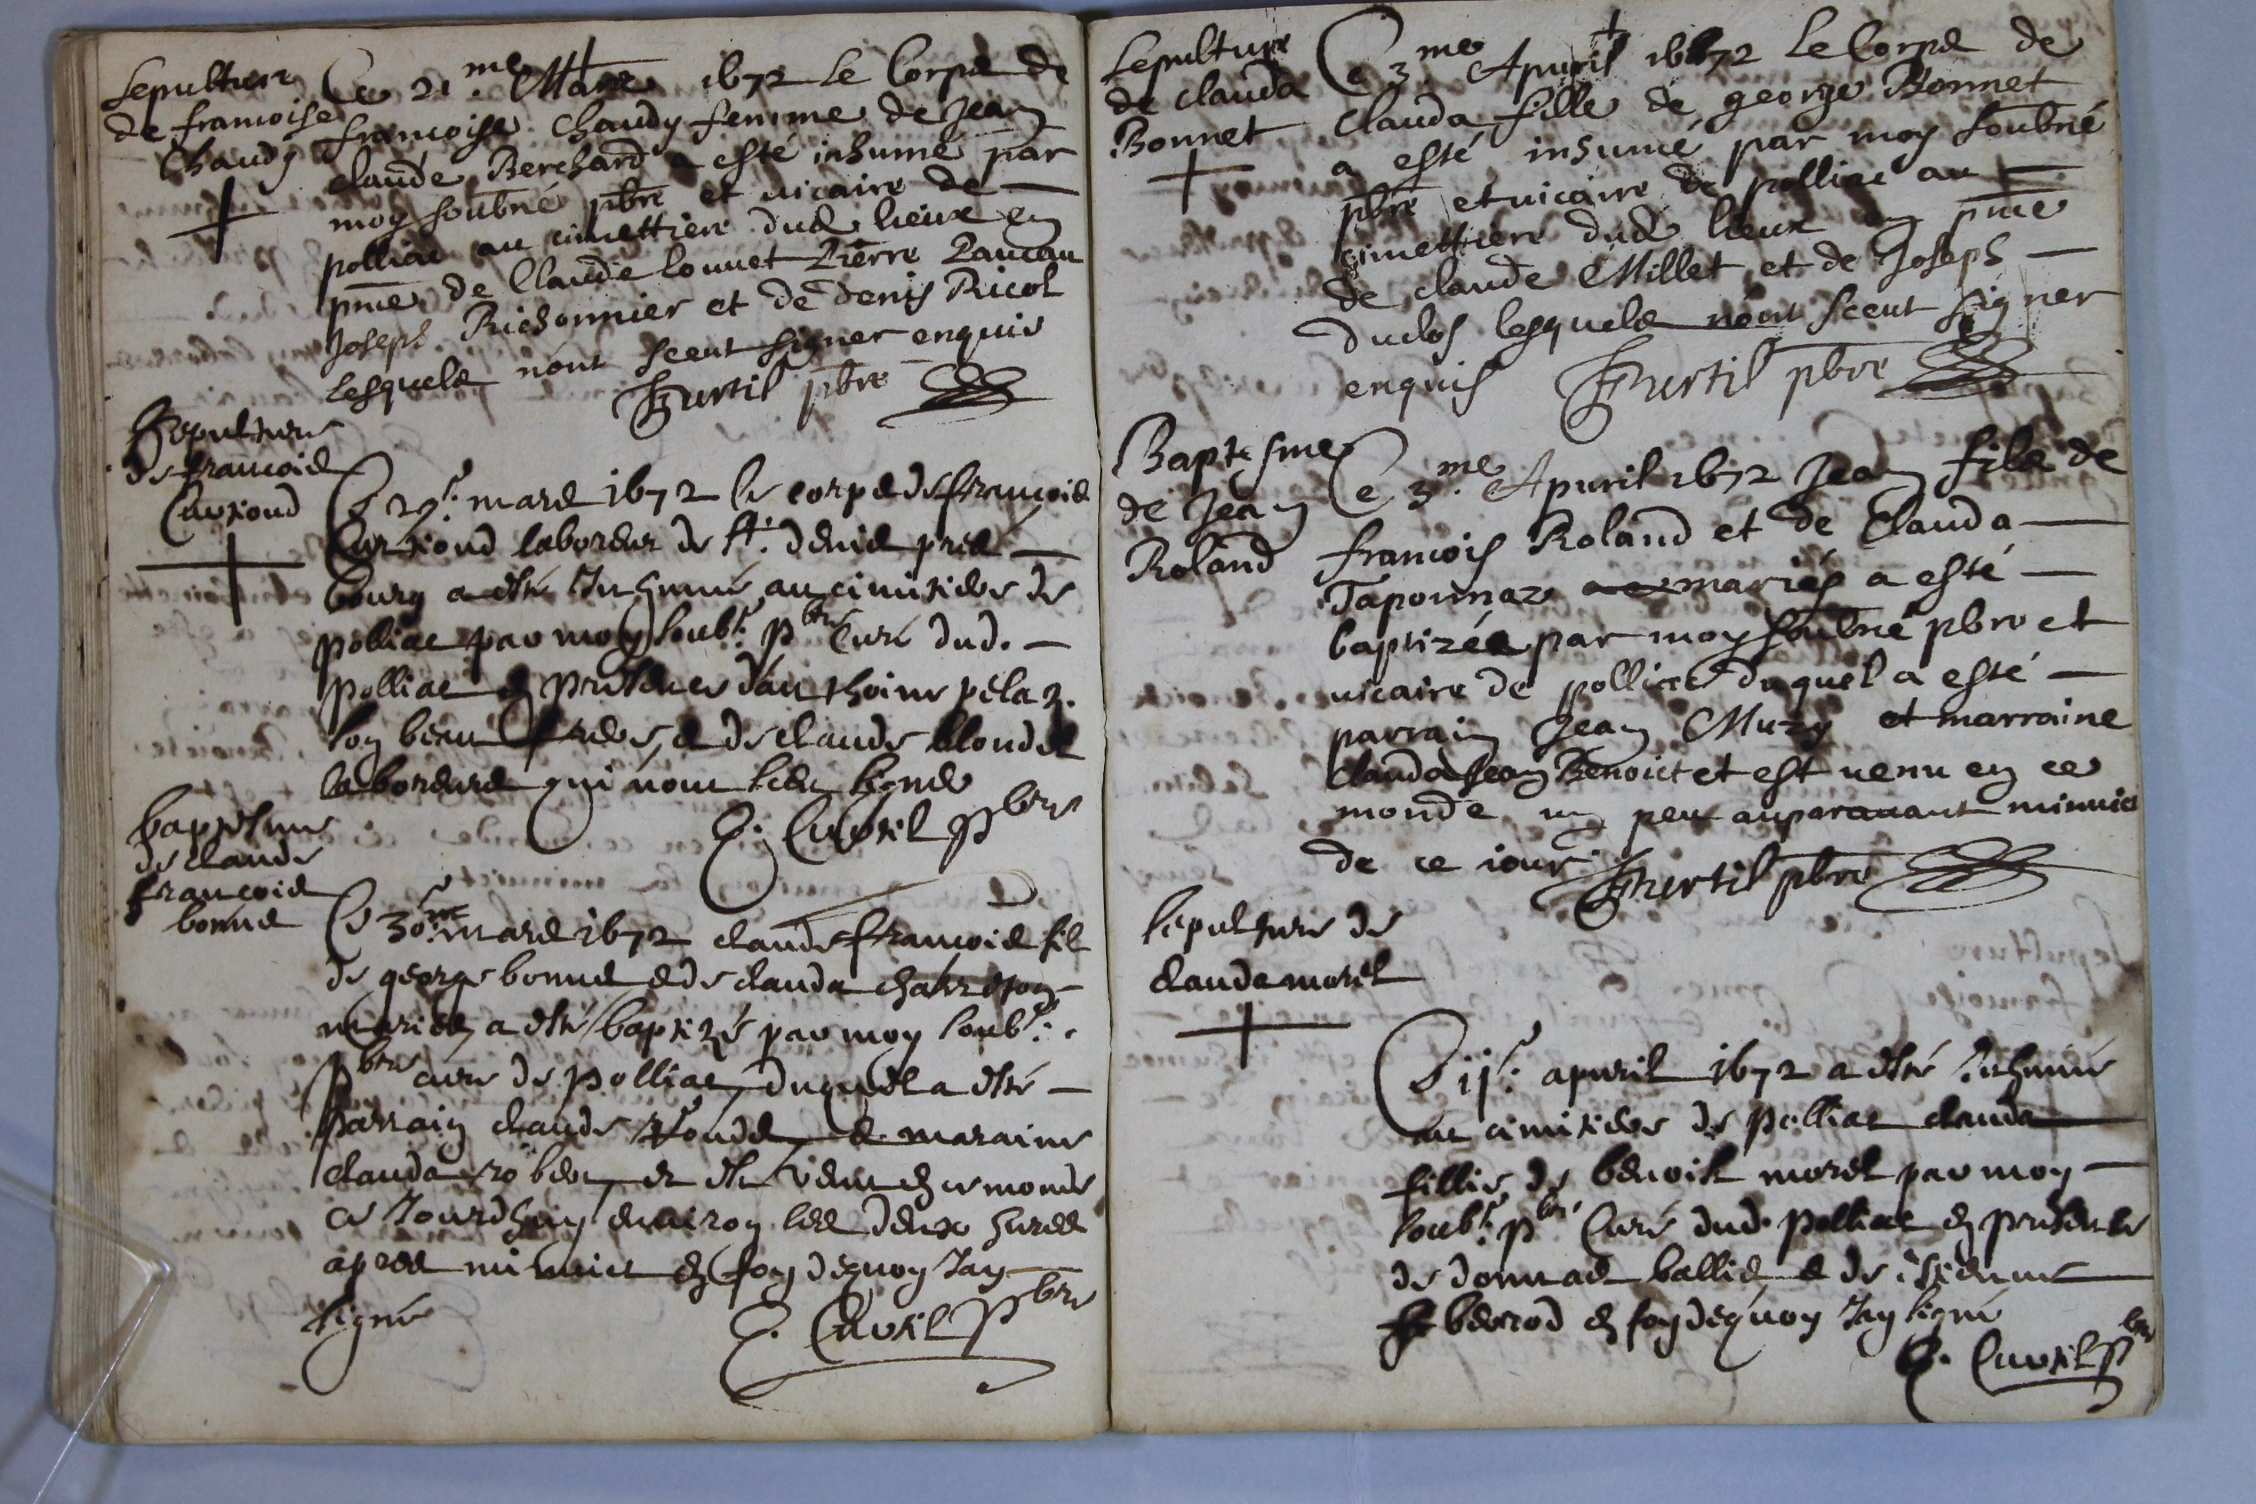 Sepulture
de francoise
Chaudy
Ce 21.me Mars 1672 Le Corps de
francoise Chaudy femme de Jean
claude Berchard a esté inhumé par
moy soubné pbre et uicaire de
polliac au cimettiere dud lieux en
pnce de Claude Louuet Pierre Pauean
Joseph Richonnier et de denis Ricol
Lesquels nont sceut signer enquis
Curtil pbre
Sepulture
de francois
Curtioud
Ce mars 1672 le corps de francois
Curtioud laboreur de st. denis pres
bourg a esté Inhumé au cimitiere de
polliac par moy soubt. pbre Curé dud.
polliac en presence dantthoine pelaz.
son beau frere, et de claude blondel
laboreurs qui nont sceu signer
Curtil pbre
baptesme
de claude
francois
bonnet
Ce 30me mars 1672 claude francois fil
de george bonnet et de clauda
mariés a esté baptizé par moy soubt.
pbre cure de Polliac, duquel a esté
parrain claude et maraine
clauda robert, et est venu en ce monde
ce Jourdhuy enuiron les deux hures
apres minuict en foy dequoy Jay
signé
Curtil pbre
Sepulture
de clauda
Bonnet
Ce 3me Apuril 1672 Le Corps de
Clauda fille de george Bonnet
a esté inhumé par moy soubné
pbre et uicaire de polliac au
cimettiere dud lieux en pnce
de claude Millet et de Joseph
duclos lesquels nont sceut signer
enquis Curtil pbre
Baptesme
de Jean
Roland
Ce 3.me Apuril 1672 Jean fils de
francois Roland et de Clauda
Taponnaz mariés a esté
baptizée par moy soubné pbre et
uicaire de polliac duquel a esté
parrain Jean Muzy et marraine
Clauda Jean Benoict et est uenu en ce
monde un peu auparauant minuic
de ce iour Curtil pbre
sepulture de
clauda morel
Ce apuril 1672 a esté Inhumé
au cimitiere de Polliac clauda
fillie de benoist morel par moy
soubt. pbre Curé dud. Polliac en presence
de donnat ballie et de estienne
berrod en foy dequoy Jay signé
Curtil pbre